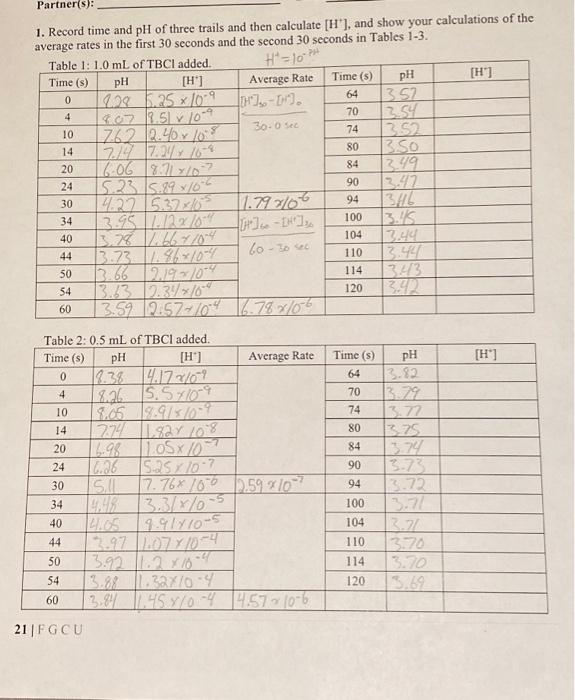 Partner(s):
1. Record time and pH of three trails and then calculate [H⁺], and show your calculations of the
average rates in the first 30 seconds and the second 30 seconds in Tables 1-3.
Table 1: 1.0 mL of TBCl added. H⁺=10⁻ᵖᴴ
Time (s) pH [H⁺] Average Rate Time (s) pH [H⁺]
0 8.28 5.25 x 10⁻⁹ [H⁺]₃₀-[H⁺]₀ 64 3.57
4 8.07 8.51 x 10⁻⁹ 70 3.54
10 7.62 2.40 x 10⁻⁸ 30-0 sec 74 3.52
14 7.14 7.24 x 10⁻⁸ 80 3.50
20 6.06 8.71 x 10⁻⁷ 84 3.49
24 5.23 5.89 x 10⁻⁶ 90 3.47
30 4.27 5.37 x 10⁻⁵ 1.79 x 10⁻⁶ 94 3.46
34 3.95 1.12 x 10⁻⁴ [H⁺]₆₀-[H⁺]₃₀ 100 3.45
40 3.78 1.66 x 10⁻⁴ 104 3.44
44 3.73 1.86 x 10⁻⁴ 60-30 sec 110 3.44
50 3.66 2.19 x 10⁻⁴ 114 3.43
54 3.63 2.34 x 10⁻⁴ 120 3.42
60 3.59 2.57 x 10⁻⁴ 6.78 x 10⁻⁶
Table 2: 0.5 mL of TBCl added.
Time (s) pH [H⁺] Average Rate Time (s) pH [H⁺]
0 8.38 4.17 x 10⁻⁹ 64 3.82
4 8.26 5.5 x 10⁻⁹ 70 3.79
10 8.05 8.91 x 10⁻⁹ 74 3.77
14 7.74 1.82 x 10⁻⁸ 80 3.75
20 6.98 1.05 x 10⁻⁷ 84 3.74
24 6.26 5.25 x 10⁻⁷ 90 3.73
30 5.11 7.76 x 10⁻⁶ 2.59 x 10⁻⁷ 94 3.72
34 4.48 3.31 x 10⁻⁵ 100 3.71
40 4.05 8.91 x 10⁻⁵ 104 3.71
44 3.97 1.07 x 10⁻⁴ 110 3.70
50 3.92 1.2 x 10⁻⁴ 114 3.70
54 3.88 1.32 x 10⁻⁴ 120 3.69
60 3.84 1.45 x 10⁻⁴ 4.57 x 10⁻⁶
21 | F G C U